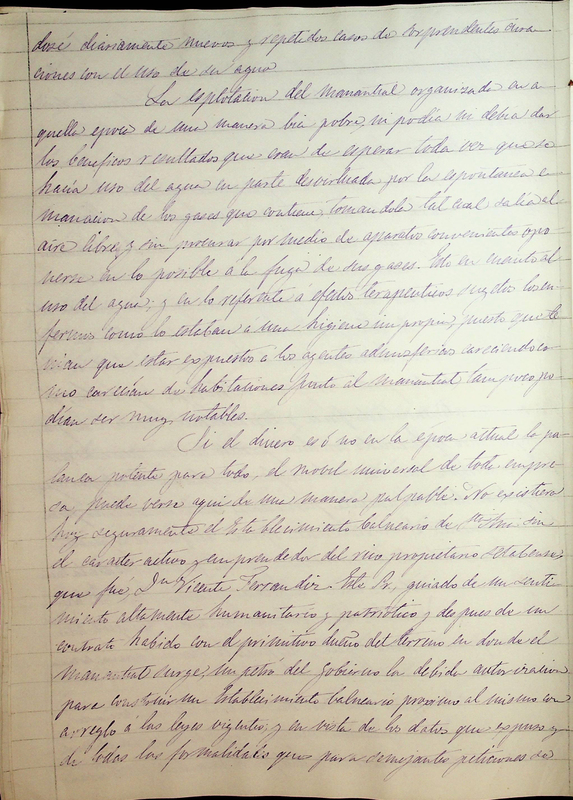 diariamente nuevos y repetidos casos de sorprendentes cura
ciones con el uso de su agua
La esplotation del manantial organizada en a
quella epoca de una manera bia pobre, ni podía ni debia dar
los beneficos resultados que eran de esperar toda vez que se
hacia uso del agua en parte desvirtuada por la espontanea e
manacion de los gases que contiene, tomandola tal cual salia al
aire libre, y sin procurar por medio de aparatos convenientes opo
nerse en lo posible á la fuga de sus gases. Esto en cuanto al
uso del agua; y en lo referente á efectos terapeuticos sugetos los en
fermos como lo estaban á una higiene impropia, puesto que te
nian que estar espuestos á los agentes admosfericos careciendo co
mo carecian de habitaciones junto al manantial tampoco po
dian ser muy notables.
Si el dinero es ó no en la época actual la pa
lanca potente para todo, el mobil universal de toda empre
sa, puede verse aqui de una manera palpable. No existiera
hoy seguramente el Establecimiento balneario de Sta Ana sin
el caracter activo y emprendedor del rico propietario
que fué, Dn Vicente Ferrandiz. Este Sr, guiado de un senti
miento altamente humanitario y patriótico y despues de un
contrato habido con el primitivo dueño del terreno en donde el
manantial surge, impetró del Gobierno la debida autorizacion
para construir un Establecimiento balneario proximo al mismo con
arreglo á las leyes vigentes; y en vista de los datos que espuso y
de todas las formalidades que para semejantes peticiones se